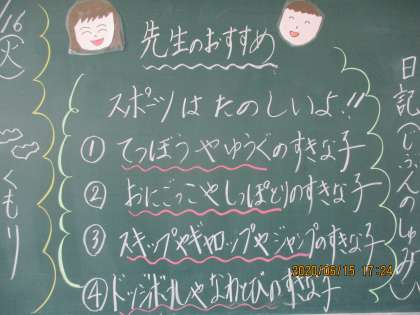 先生のおすすめ
スポーツはたのしいよ!!
① てつぼうやゆうぐのすきな子
② おにごっこやしっぽとりのすきな子
③ スキップやギャロップやジャンプのすきな子
④ ドッジボールやなわとびのすきな子
日記(じぶんのしゅみ)
/16
(火)
くもり
2020/06/15 17:24